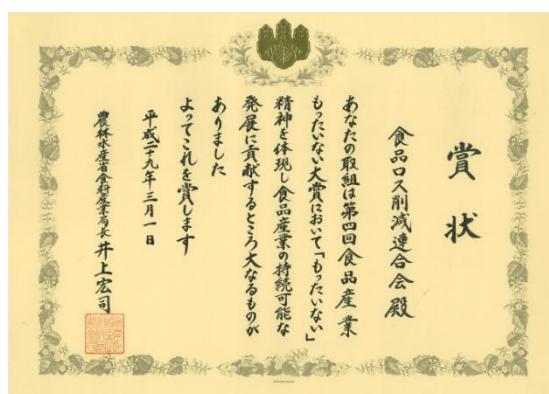 賞状
食品ロス削減連合会殿
あなたの取組は第四回食品産業
もったいない大賞において「もったいない」
精神を体現し食品産業の持続可能な
発展に貢献するところ大なるものが
ありました
よってこれを賞します
平成二九年三月一日
農林水産省食料産業局長 井上宏司